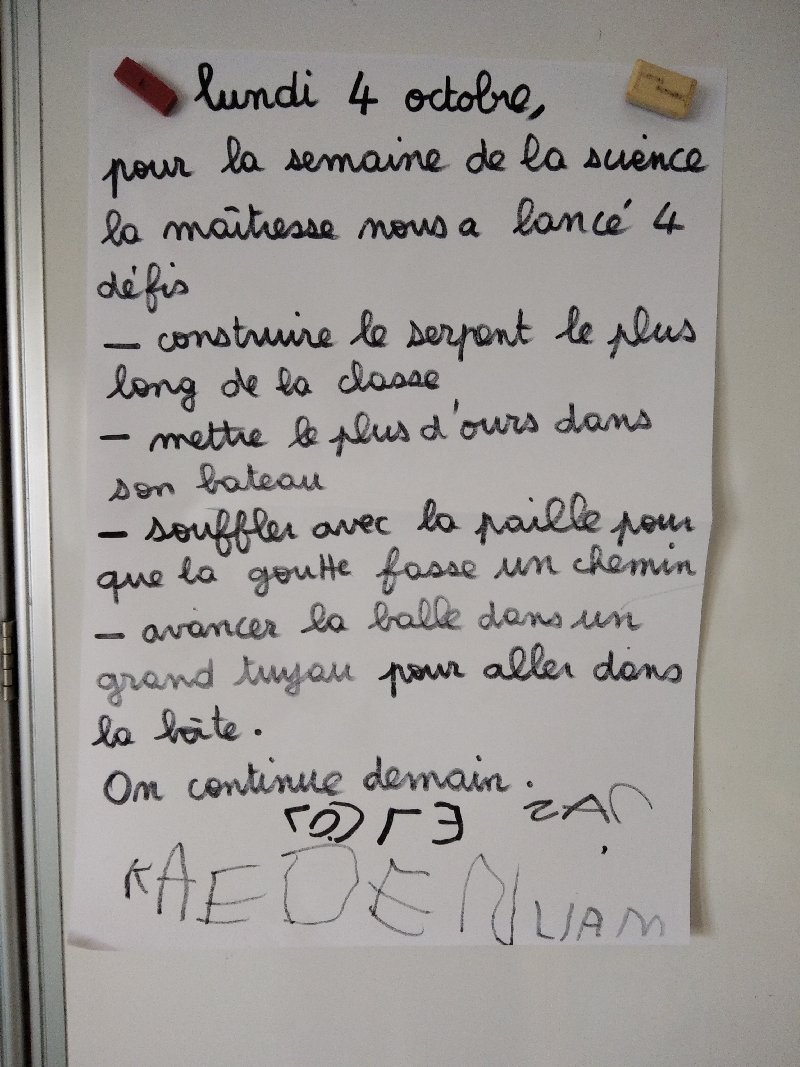 lundi 4 octobre,
pour la semaine de la science
la maîtresse nous a lancé 4
défis
– construire le serpent le plus
long de la classe
– mettre le plus d'ours dans
son bateau
– souffler avec la paille pour
que la goutte fasse un chemin
– avancer la balle dans un
grand tuyau pour aller dans
la boîte.
On continue demain.
KAEDEN LIAM